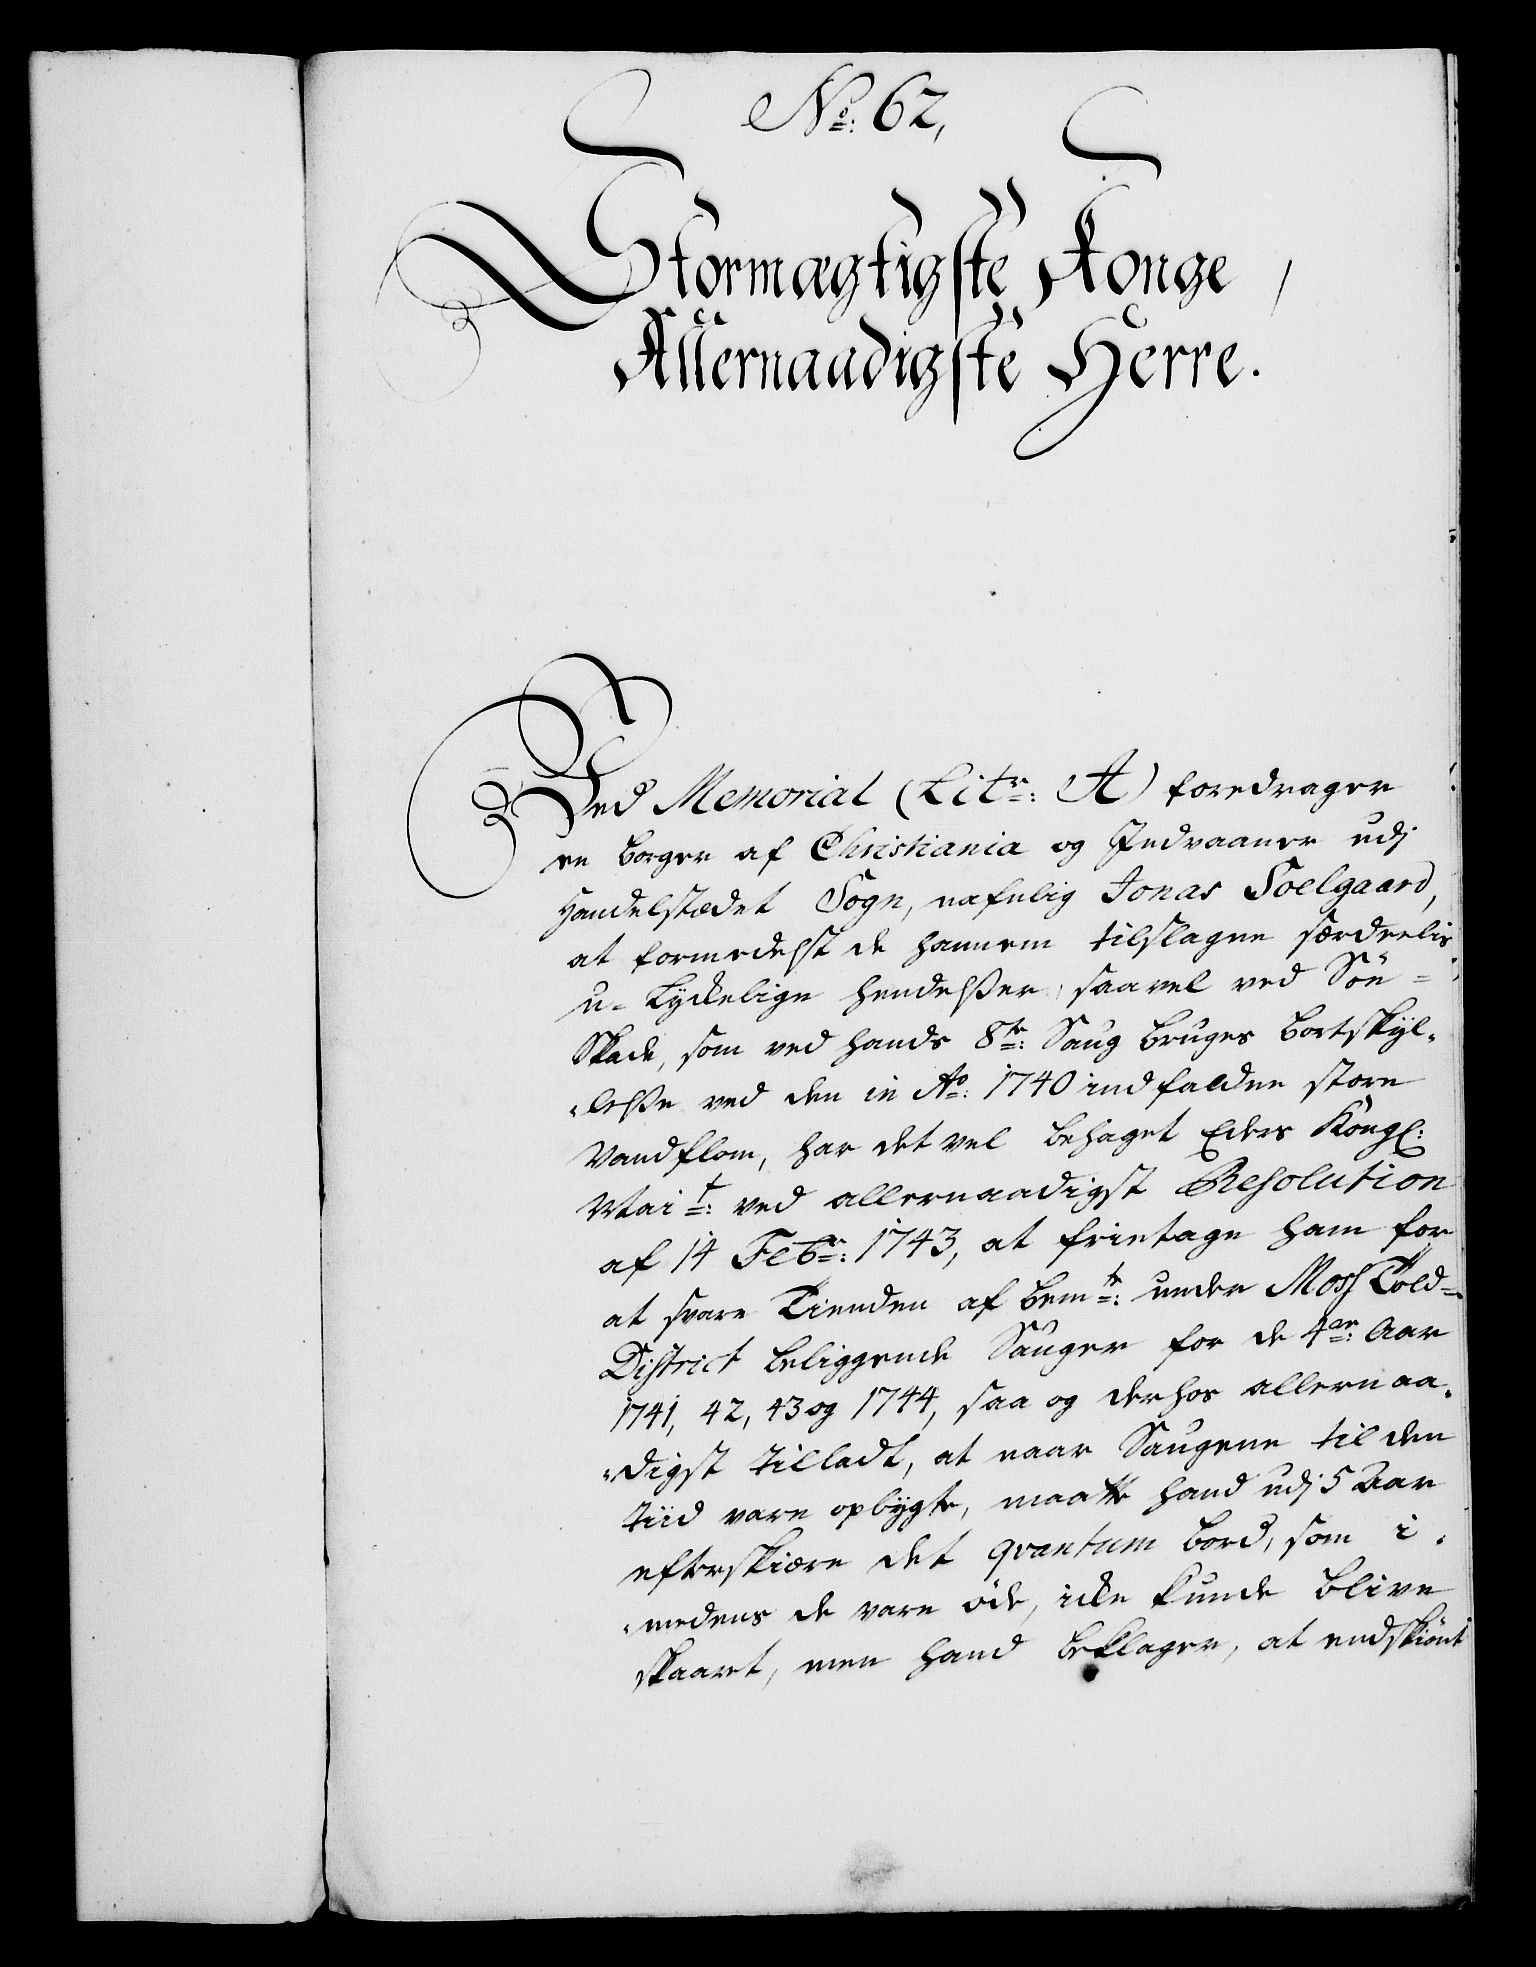 No: 62,
Stormægtigste Konge,
Allernaadigste Herre.
Ved Memorial (Litr: A) foredrager
en borger af Christiania og Indvaaner udj
Handelstædet Sogn, nafnlig Jonas Soelgaard,
at formedelst de hannem tilslagne særdeelis
u-Lyckelige hendelßer, saavel ved Söe-
Skade, som ved hands 8te: Saug bruges bortskÿl-
-lelße ved den in Ao: 1740 indfaldne store
Vandflom, har det vel behaget Eders Kongl:
Mait: ved allernaadigst Resolution
af 14 Febr: 1743, at frietage ham for
at svare Tienden af bemte: under Moss Told-
District beliggende Sauger for de 4re: Aar
1741, 42, 43 og 1744, saa og derhos allernaa-
-digst tilladt, at naar Saugene til den
tiid vare opbÿgte, maatte hand udj 5 Aar
efterskiære det qvantum bord, som i-
-medens de vare øde, icke kunde blive
skaaret, men hand beklager, at endskiönt